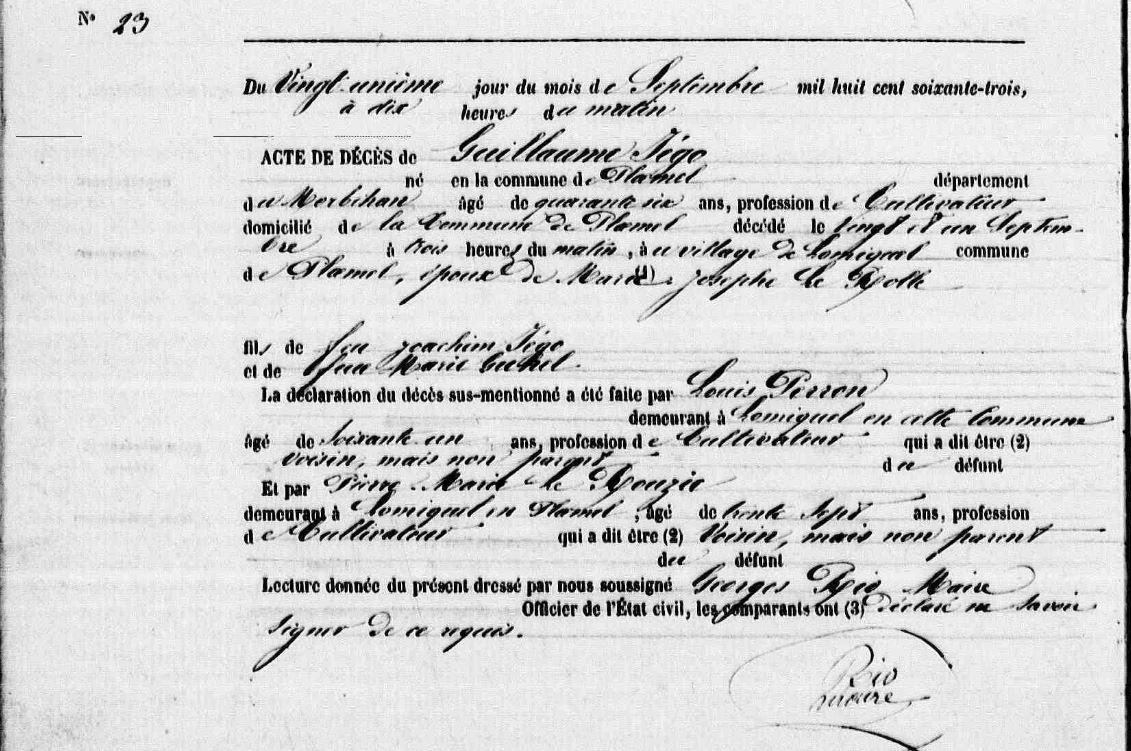 N° 23
Du Vingt unième jour du mois de Septembre mil huit cent soixante-trois,
à dix heures du matin
ACTE DE DÉCÈS de Guillaume Jégo
né en la commune de Plamel département
du Morbihan âgé de quarante six ans, profession de Cultivateur
domicilié de la Commune de Plamel décédé le vingt et un Septem-
bre à trois heures du matin, à u village de commune
de Plamel, époux de Marie (1) Josephe Le
fils de feu Joachim Jégo
et de feue Marie
La déclaration du décès sus-mentionné a été faite par Louis Perron
demeurant à Lomiquel en cette Commune
âgé de soixante un ans, profession de Cultivateur qui a dit être (2)
voisin, mais non parent du défunt
Et par Pierre Marie Le Rouzic
demeurant à Lomiquel en Plamel, âgé de trente sept ans, profession
de Cultivateur qui a dit être (2) Voisin, mais non parent
du défunt
Lecture donnée du présent dressé par nous soussigné Georges Rio Maire
Officier de l'État civil, les comparants ont (3) déclaré ne savoir
signer de ce requis.
Rio
maire